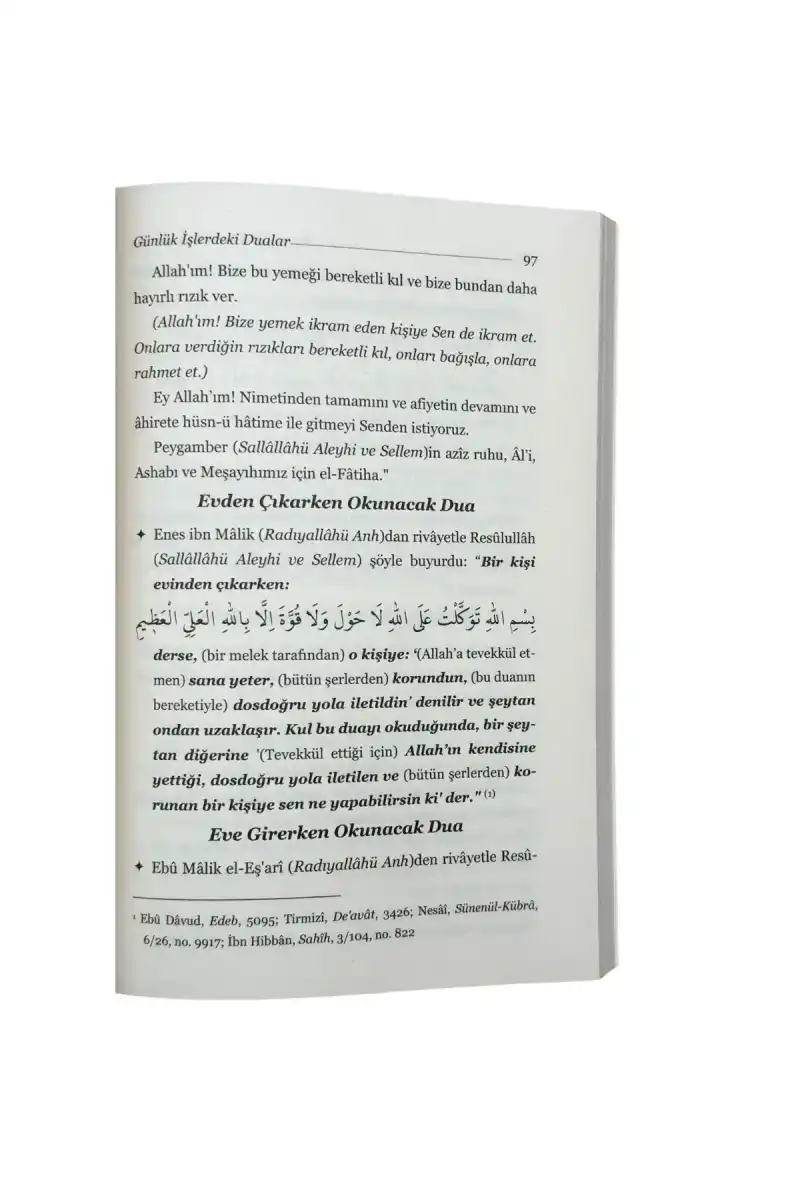 Günlük İşlerdeki Dualar
97
Allah'ım! Bize bu yemeği bereketli kıl ve bize bundan daha
hayırlı rızık ver.
(Allah'ım! Bize yemek ikram eden kişiye Sen de ikram et.
Onlara verdiğin rızıkları bereketli kıl, onları bağışla, onlara
rahmet et.)
Ey Allah'ım! Nimetinden tamamını ve afiyetin devamını ve
âhirete hüsn-ü hâtime ile gitmeyi Senden istiyoruz.
Peygamber (Sallâllâhü Aleyhi ve Sellem)in azîz ruhu, Âl'i,
Ashabı ve Meşayıhımız için el-Fâtiha."
Evden Çıkarken Okunacak Dua
✦ Enes ibn Mâlik (Radıyallâhü Anh)dan rivâyetle Resûlullâh
(Sallâllâhü Aleyhi ve Sellem) şöyle buyurdu: "Bir kişi
evinden çıkarken:
بِسْمِ اللّٰهِ تَوَكَّلْتُ عَلَى اللّٰهِ لَا حَوْلَ وَلَا قُوَّةَ اِلَّا بِاللّٰهِ الْعَلِيِّ الْعَظِيمِ
derse, (bir melek tarafından) o kişiye: '(Allah'a tevekkül et-
men) sana yeter, (bütün şerlerden) korundun, (bu duanın
bereketiyle) dosdoğru yola iletildin' denilir ve şeytan
ondan uzaklaşır. Kul bu duayı okuduğunda, bir şey-
tan diğerine '(Tevekkül ettiği için) Allah'ın kendisine
yettiği, dosdoğru yola iletilen ve (bütün şerlerden) ko-
runan bir kişiye sen ne yapabilirsin ki' der." (1)
Eve Girerken Okunacak Dua
✦ Ebû Mâlik el-Eş'arî (Radıyallâhü Anh)den rivâyetle Resû-
¹ Ebû Dâvud, Edeb, 5095; Tirmizî, De'avât, 3426; Nesâî, Sünenül-Kübrâ,
6/26, no. 9917; İbn Hibbân, Sahîh, 3/104, no. 822